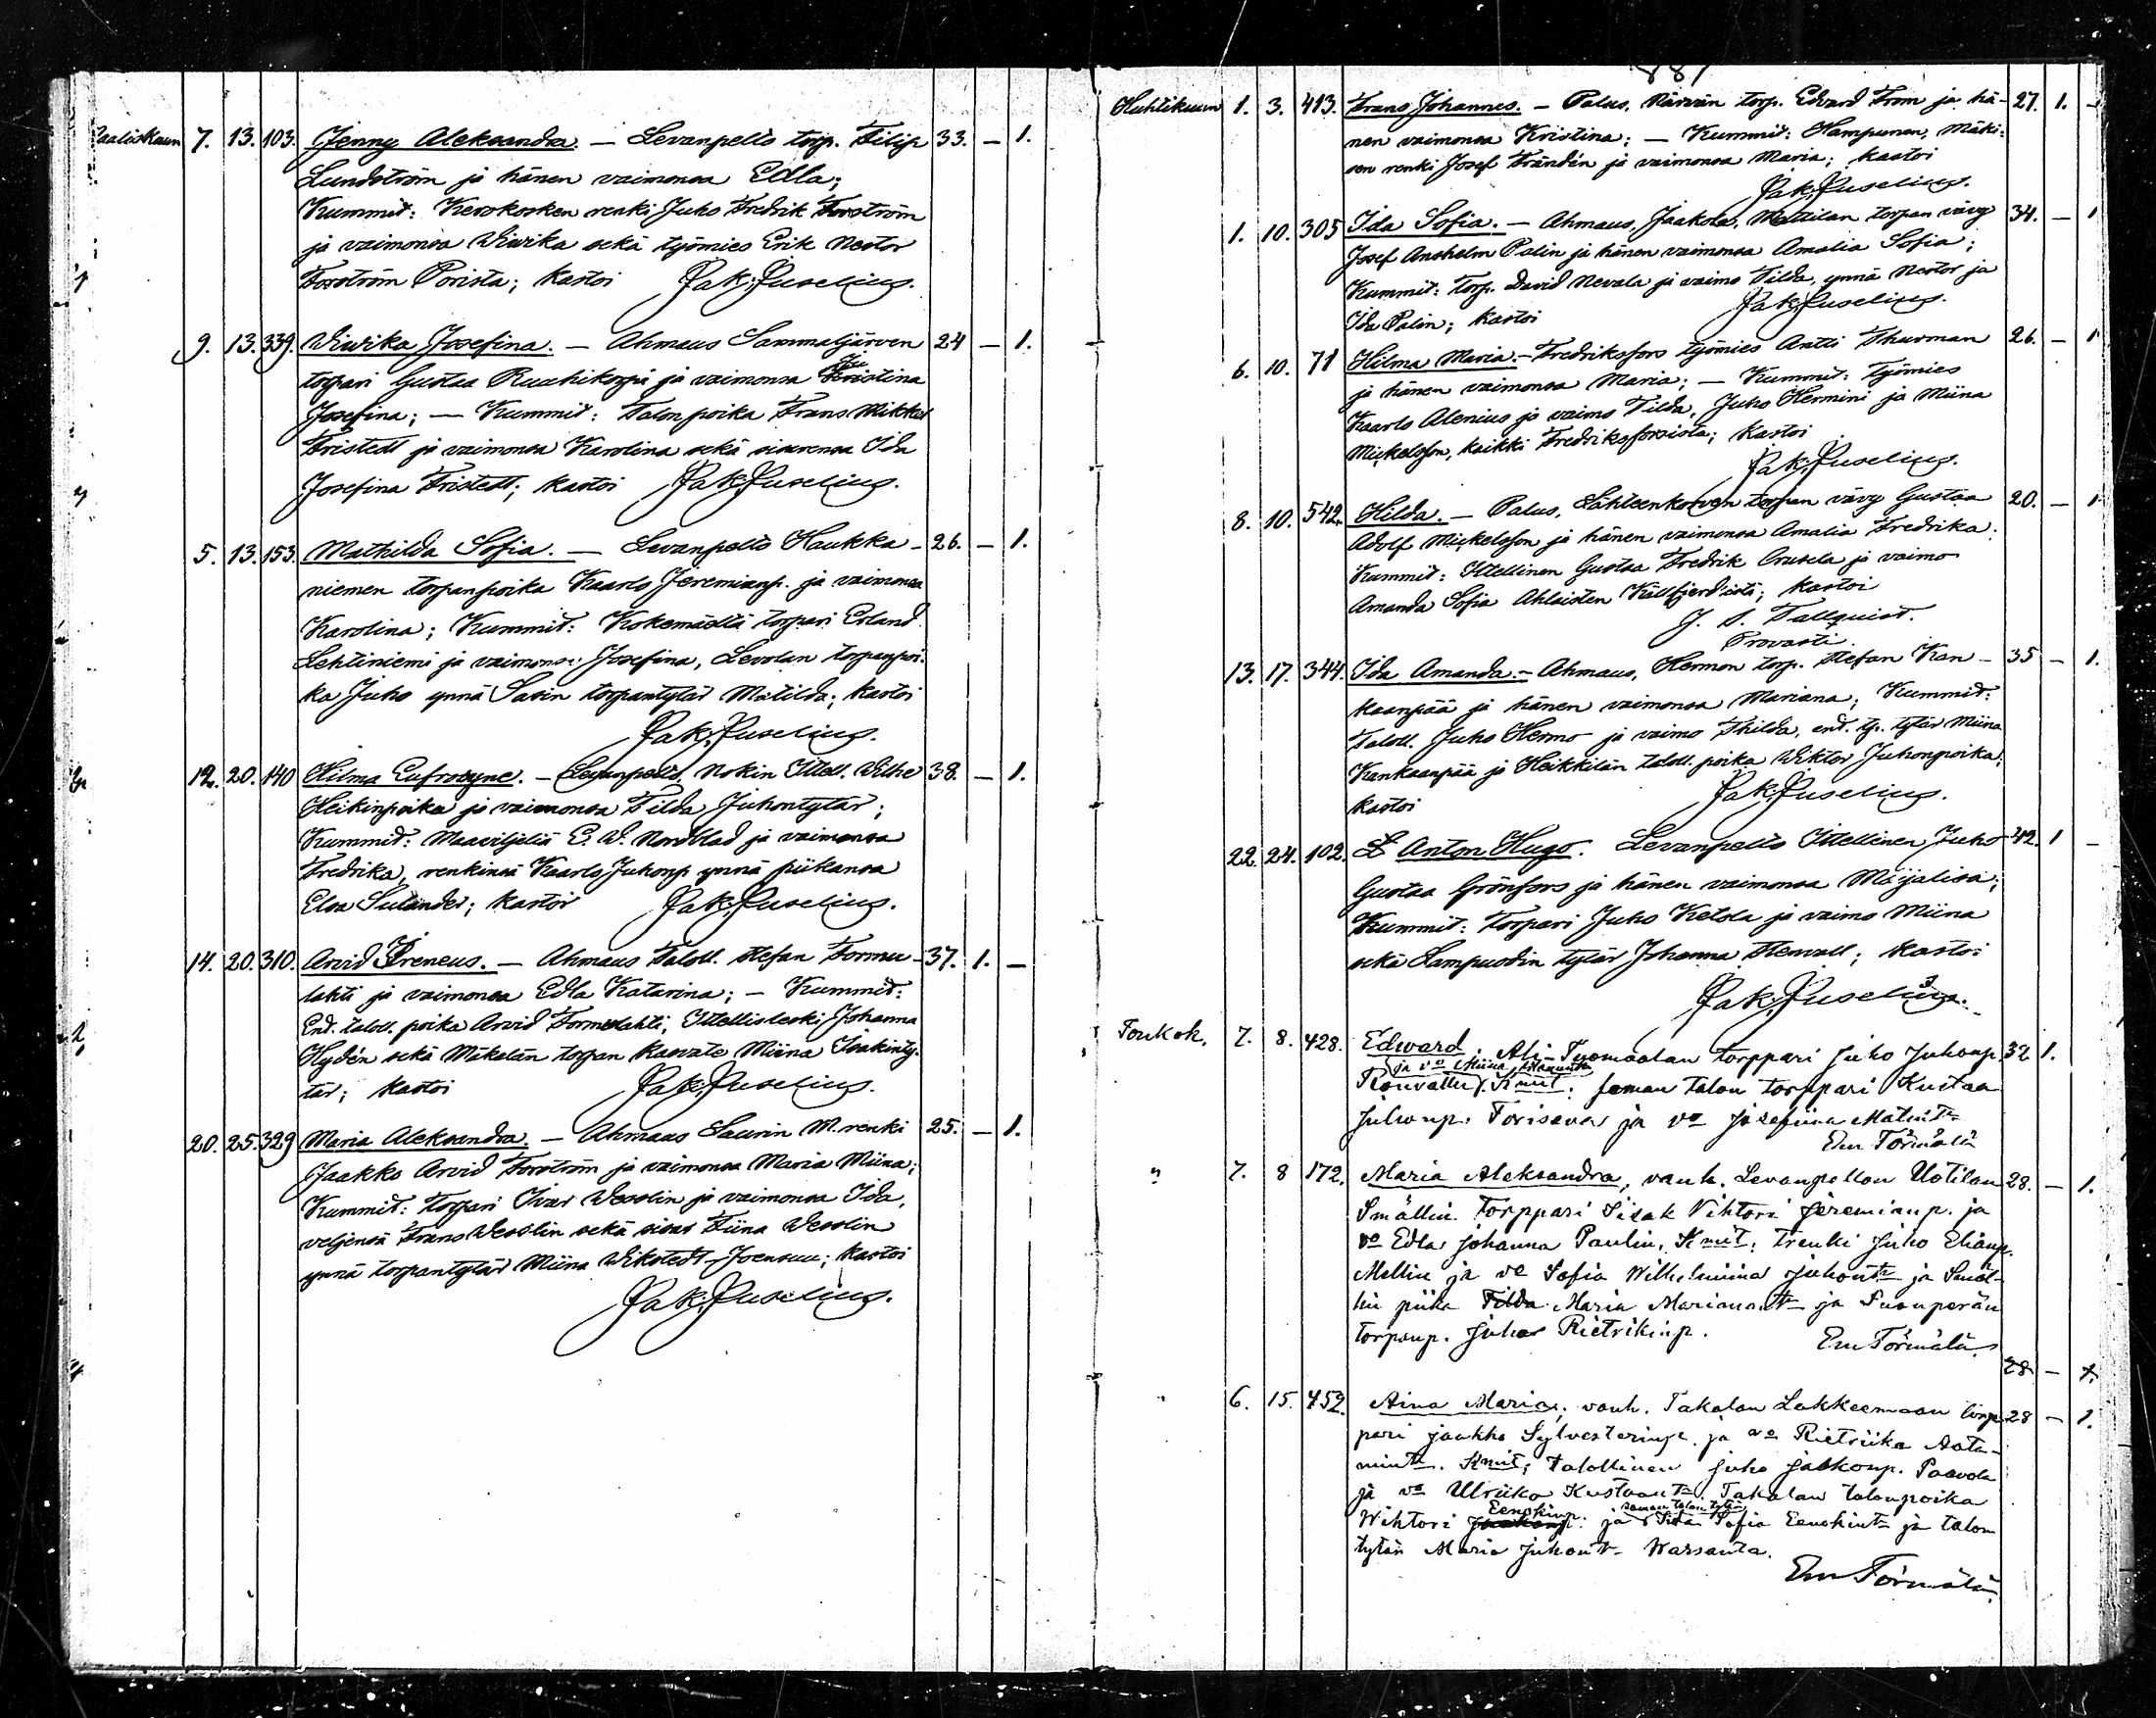 Maaliskuun 7. 13. 103. Jenny Aleksandra. — Levanpelto torp. Filip 33. — 1.
Lundström ja hänen vaimonsa Edla;
Kummit: Kerokosken renki Juho Fredrik Forström
ja vaimonsa Wiwika sekä työmies Erik Nestor
Forström Porista; kastoi Jak. Juselius.
9. 13. 339. Wiwika Josefina. — Ahmaus Sammaljärven 24 — 1.
torpari Gustaa Ruohikorpi ja vaimonsa Kristina
Josefina; — Kummit: Talonpoika Frans Mikkel
Fristedt ja vaimonsa Karolina sekä sisarensa Ida
Josefina Fristedt; kastoi Jak. Juselius.
5. 13. 153. Mathilda Sofia. — Levanpelto Haukka- 26. — 1.
niemen torpanpoika Kaarlo Jeremianp. ja vaimonsa
Karolina; Kummit: Kokemäeltä torpari Erland
Lehtiniemi ja vaimonsa Josefina, Levolan torpanpoi-
ka Juho ynnä Savin torpantytär Matilda; kastoi
Jak. Juselius.
12. 20. 140 Hilma Eufrosyne. — Levanpelto, Nokin Ittell. Wilhe 38. — 1.
Heikinpoika ja vaimonsa Tilda Juhontytär;
Kummit: Maaviljeliä E. W. Nordblad ja vaimonsa
Fredrika, renkinsä Kaarlo Juhonp. ynnä piikansa
Elsa Sulander; kastoi Jak. Juselius.
14. 20. 310. Arvid Ireneus. — Ahmaus Taloll. Stefan Formu- 37. 1. —
lahti ja vaimonsa Edla Katarina; — Kummit:
Ent. taloll. poika Arvid Formulahti, Ittellisleski Johanna
Hydén sekä Mäkelän torpan kasvate Miina Isakinty-
tär; kastoi Jak. Juselius.
20. 25. 329 Maria Aleksandra. — Ahmaus Saurin M. renki 25. — 1.
Jaakko Arvid Forström ja vaimonsa Maria Miina;
Kummit: torpari Ivar Wesslin ja vaimonsa Ida,
veljensä Frans Wesslin sekä sisar Fiina Wesslin
ynnä torpantytär Miina Wikstedt Joensuu; kastoi
Jak. Juselius.
881
Huhtikuun 1. 3. 413. Frans Johannes. — Palus, Närvän torp. Edvard From ja hä- 27. 1. —
nen vaimonsa Kristina; — Kummit: Hampunen, Mäki-
sen renki Josef Frändén ja vaimonsa Maria; kastoi
Jak. Juselius.
1. 10. 305 Ida Sofia. — Ahmaus, Jaakola, Mattilan torpan vävy 34. — 1
Josef Anshelm Palin ja hänen vaimonsa Amalia Sofia;
Kummit: torp. David Nevala ja vaimo Tilda, ynnä Nestor ja
Ida Palin; kastoi Jak. Juselius.
6. 10. 71 Hilma Maria. — Fredriksfors työmies Antti Thurman 26. — 1
ja hänen vaimonsa Maria; — Kummit: työmies
Kaarlo Alenius ja vaimo Tilda, Juho Hermini ja Miina
Mickelsson, kaikki Fredriksforsista; kastoi
Jak. Juselius.
8. 10. 542. Hilda. — Palus, Lähteenkorven torpan vävy Gustaa 20. — 1
Adolf Mickelsson ja hänen vaimonsa Amalia Fredrika;
Kummit: Ittellinen Gustaa Fredrik Crusela ja vaimo
Amanda Sofia Ahlaisten Källfjerdistä; kastoi
J. S. Tallquist.
Provasti
13. 17. 344. Ida Amanda. — Ahmaus, Hermon torp. Stefan Kan- 35 — 1.
kaanpää ja hänen vaimonsa Mariana; Kummit:
Taloll. Juho Hermo ja vaimo Thilda, ent. tp. tytär Miina
Kankaanpää ja Heikkilän taloll. poika Wiktor Juhonpoika;
kastoi Jak. Juselius.
22. 24. 102. Anton Hugo. Levanpelto Ittellinen Juho 42. 1 —
Gustaa Grönfors ja hänen vaimonsa Maijalisa;
Kummit: torpari Juho Ketola ja vaimo Miina
sekä Lampuodin tytär Johanna Stenvall; kastoi
Jak. Juselius.
Toukok. 7. 8. 428. Edward. Ali-Tuomaalan torppari Juho Juhonp. 32 1.
ja vo Miina Amanda
Kouvattu. Kmit: saman talon torppari Kustaa
Juhonp. Torisева ja vo Josefiina Matint.
Em Törmälä
" 7. 8 172. Maria Aleksandra, vanh. Levanpellon Uotilan 28. — 1.
Smällin torppari Iisak Vihtori Jeremianp. ja
vo Edla Johanna Paulin. Kmit: trenki Juho Elianp.
Mellin ja vo Sofia Wilhelmiina Juhont. ja Smäl-
lin piika Maria Marianant. ja Suonperän
torpanp. Juho Rietrikinp. Em Törmälä
28. — 1.
6. 15. 452. Aina Maria, vanh. Takalan Lakkeemaan torp- 28 — 1.
pari Jaakko Sylvesterinp. ja vo Rietriika Aata-
mint. Kmit: talollinen Juho Jaakonp. Paavola
ja vo Ulriika Kustaant. Takalan talonpoika
Eenokinp. saman talon tytär
Wihtori ja Iida Sofia Eenokint. ja talon
tytär Maria Juhont. Warsanta.
Em Törmälä.